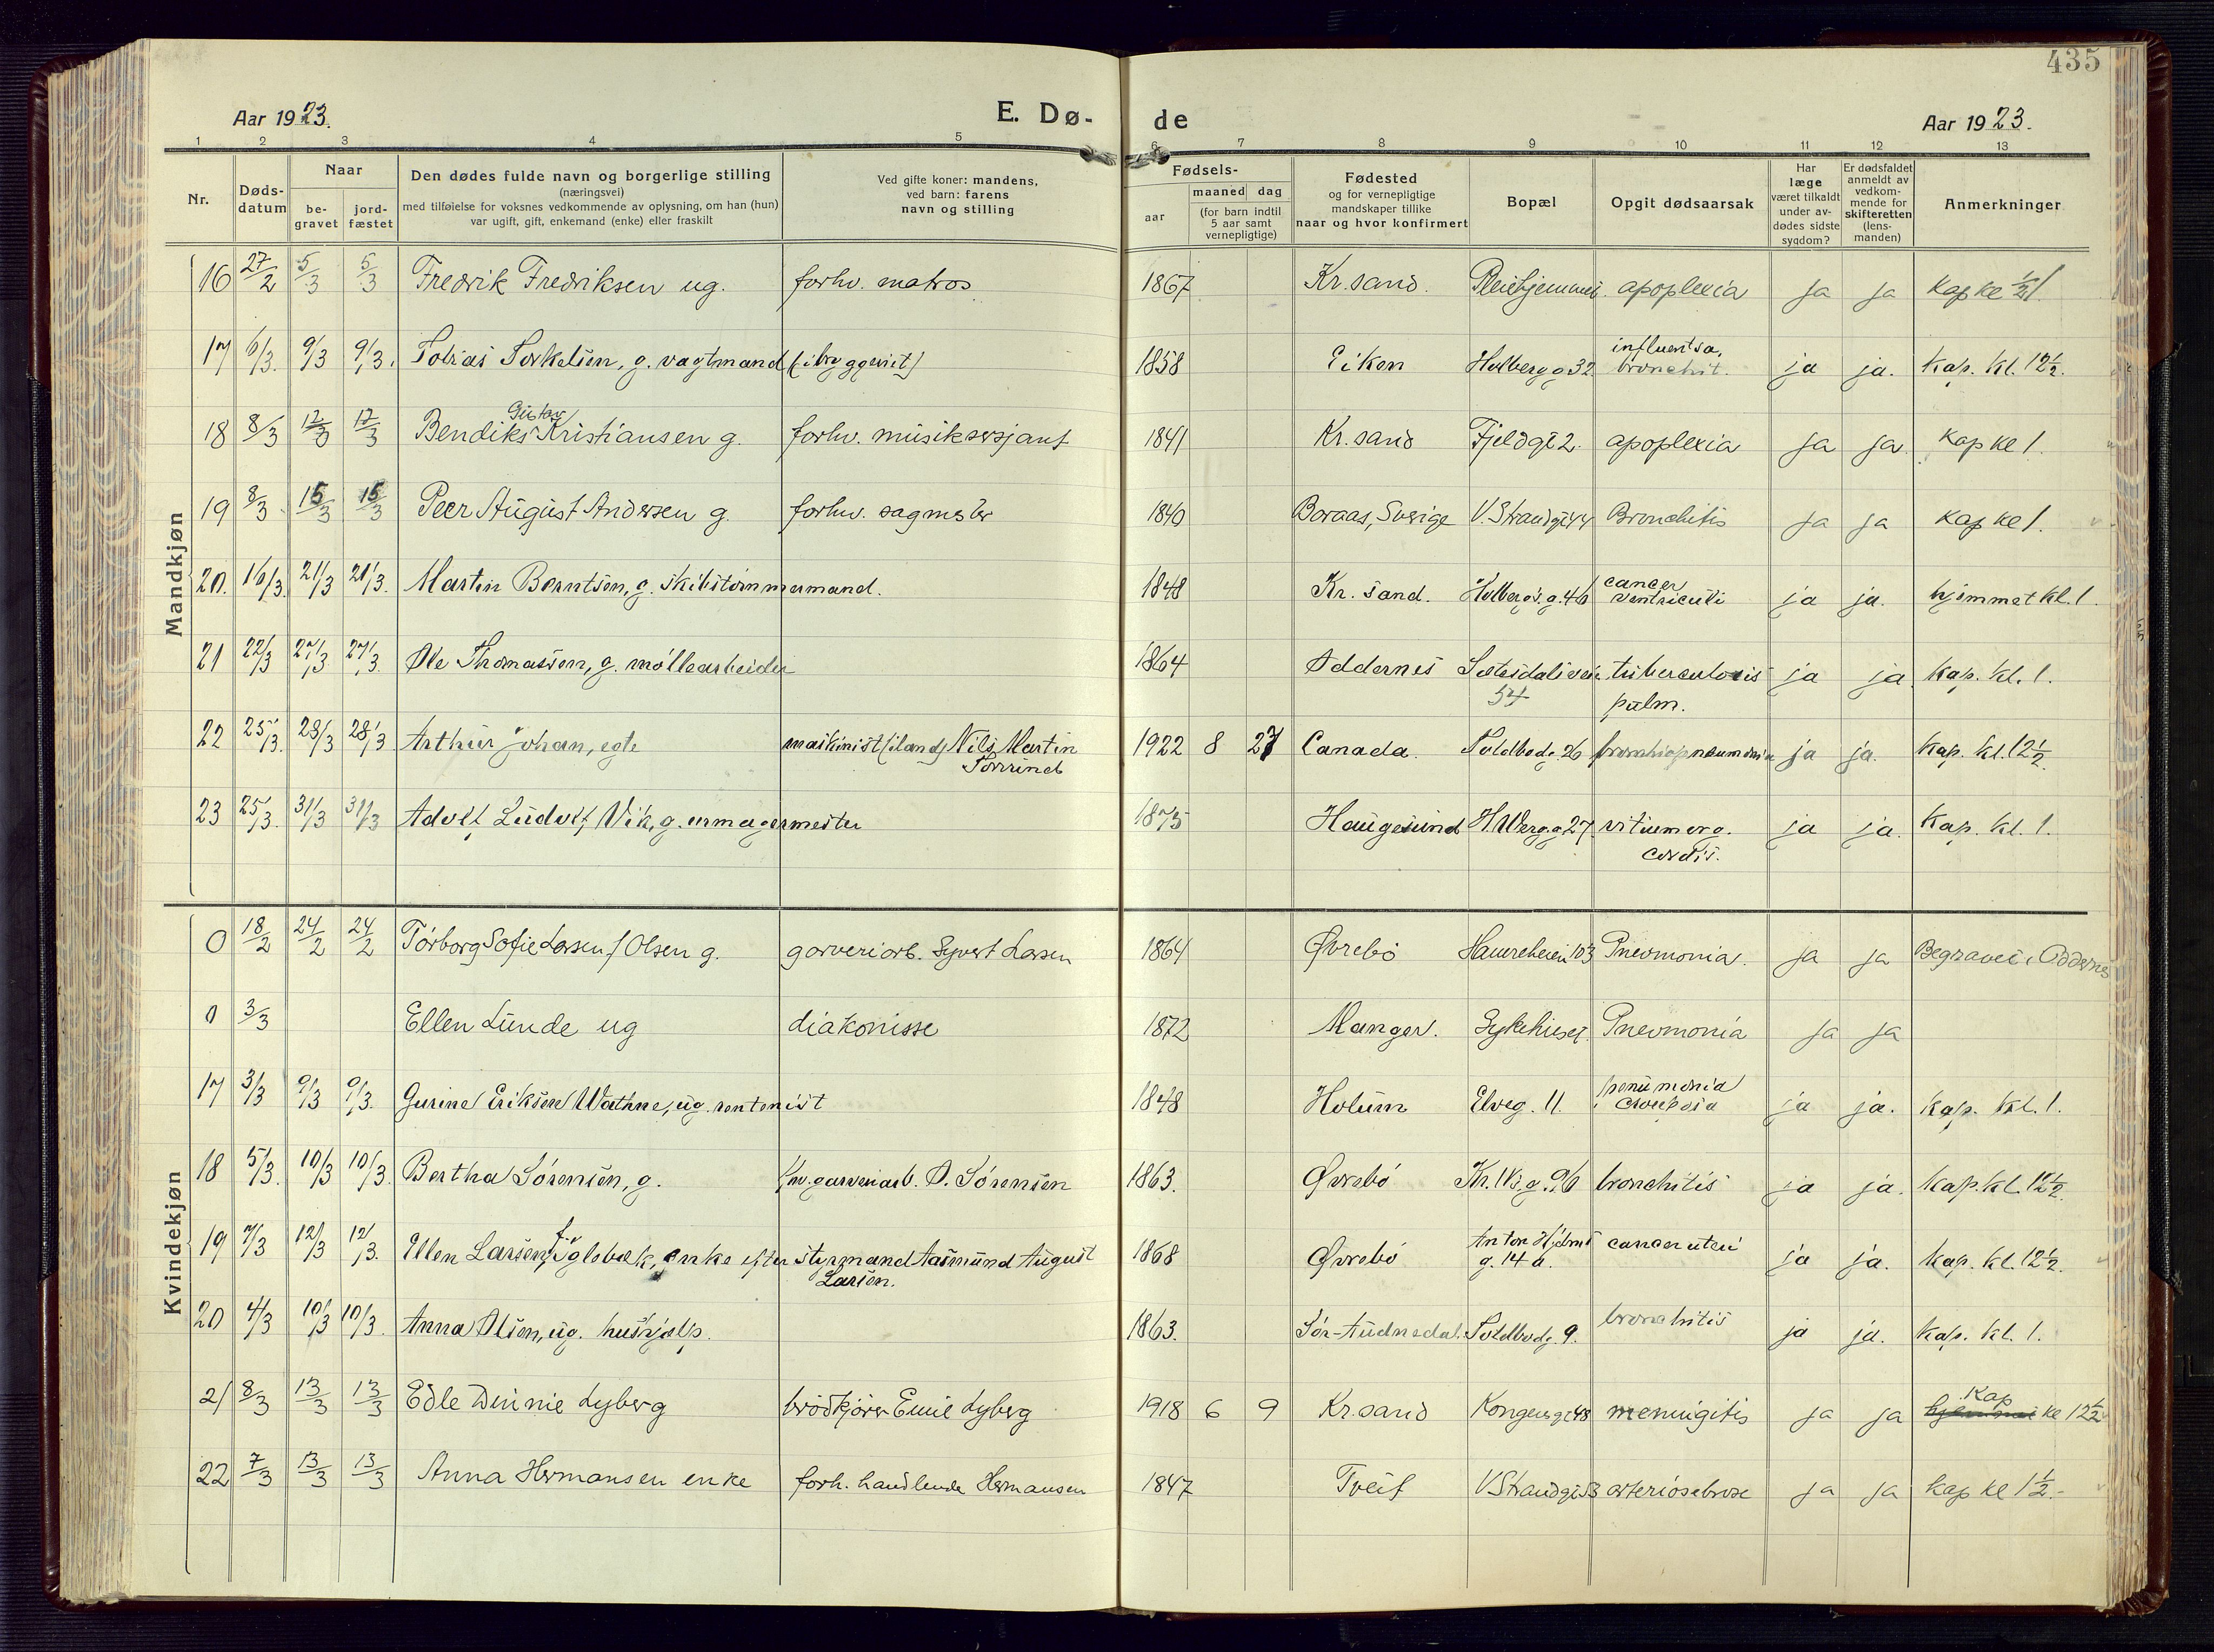 435
Aar 1923.
E. Dø-
de
Aar 1923.
1 2 3 4 5 6 7 8 9 10 11 12 13
Nr.
Døds-
datum
Naar
be-
gravet
jord-
fæstet
Den dødes fulde navn og borgerlige stilling
(næringsvei)
med tilføielse for voksnes vedkommende av oplysning, om han (hun)
var ugift, gift, enkemand (enke) eller fraskilt
Ved gifte koner: mandens,
ved barn: farens
navn og stilling
Fødsels-
aar
maaned dag
(for barn indtil
5 aar samt
vernepligtige)
Fødested
og for vernepligtige
mandskaper tillike
naar og hvor konfirmert
Bopæl
Opgit dødsaarsak
Har
læge
været tilkaldt
under av-
dødes sidste
sygdom?
Er dødsfaldet
anmeldt av
vedkom-
mende for
skifteretten
(lens-
manden)
Anmerkninger
Mandkjøn
16 27/2 5/3 5/3 Fredrik Fredriksen ug. forhv. matros 1867 Kr.sand. Pleiehjemmet. apoplexia ja ja kap ke
17 6/3. 9/3 9/3. Tobias Torkelsen, g. vagtmand 1858 Eiken Holbergg 32 influentsa, bronchit. ja ja. Kap. kl. 12½.
18 8/3 12/3 12/3 Bendiks Gustav Kristiansen g. forhv. musiksersjant 1841 Kr.sand Fjeldgt 2. apoplexia ja ja kap ke 1.
19 8/3 15/3 15/3 Peer August Andersen g. forhv. sagmester 1840 Boraas, Sverige V. Strandgt 44 Bronchitis ja ja kap ke 1.
20. 16/3. 21/3 21/3. Martin Berntsen, g. skibstømmermand. 1848 Kr. sand. Holbergs. g. 46 cancer ventriculi ja ja. hjemmet kl. 1.
21 22/3 27/3 27/3. Ole Thomassen, g. møllearbeider 1864 Oddernes Sætesdalsvein 54 tuberculosis pulm. ja ja Kap. kl. 1.
22 25/3. 28/3 28/3 Arthur Johan, egte maskinist (iland) Nils Martin 1922 8 27 Canada. Toldbodg. 26 bronchiopneumonia ja ja. Kap. kl. 12½
23 25/3. 31/3 31/3 Adolf Ludolf Vik, g. urmagermester 1875 Haugesund Holbergg 27 vitium org. cordis. ja ja. Kap. kl. 1.
Kvindekjøn
0 18/2 24/2 24/2 Torborg Sofie Larsen f Olsen g. garveriarb. Syvert Larsen 1864 Øvrebø 103 Pneomonia. ja ja Begravet i Oddernes
0 3/3 Ellen Lunde ug diakonisse 1872 Manger. Sykehuset. Pneomonia ja ja
17 3/3 9/3 9/3. Gurine Eriksen Wathne, ug. rentenist 1848 Holum Elveg. 11. penumonia crouposa ja ja. Kap. kl. 1.
18 5/3. 10/3 10/3. Bertha Sørensen, g. fhv. garveriarb. O. Sørensen 1863. Øvrebø Kr. IVs. g. 96 bronchitis ja ja. Kap. kl. 12½.
19 7/3 12/3 12/3. Ellen Larsen, f. Iglebæk, enke efter styrmand Aasmund August Larsen. 1868 Øvrebø g. 14 a. cancer uteri ja ja. Kap. kl. 12½.
20 4/3 10/3 10/3. Anna Olsen, ug. hushjelp. 1863. Sør-Audnedal. Toldbodg. 9. bronchitis ja ja. Kap. kl. 1.
21 8/3 13/3 13/3 Edle Dinnie Lyberg brødkjører Emil Lyberg 1918 6 9 Kr.sand Kongensgt 48 menuigitis ja ja Kap hjemmet ke 12½
22 7/3 13/3 13/3 Anna Hermansen enke forh. handlende Hermansen 1847 Tveit V Strandgt 53 ja ja kap kl 1½.